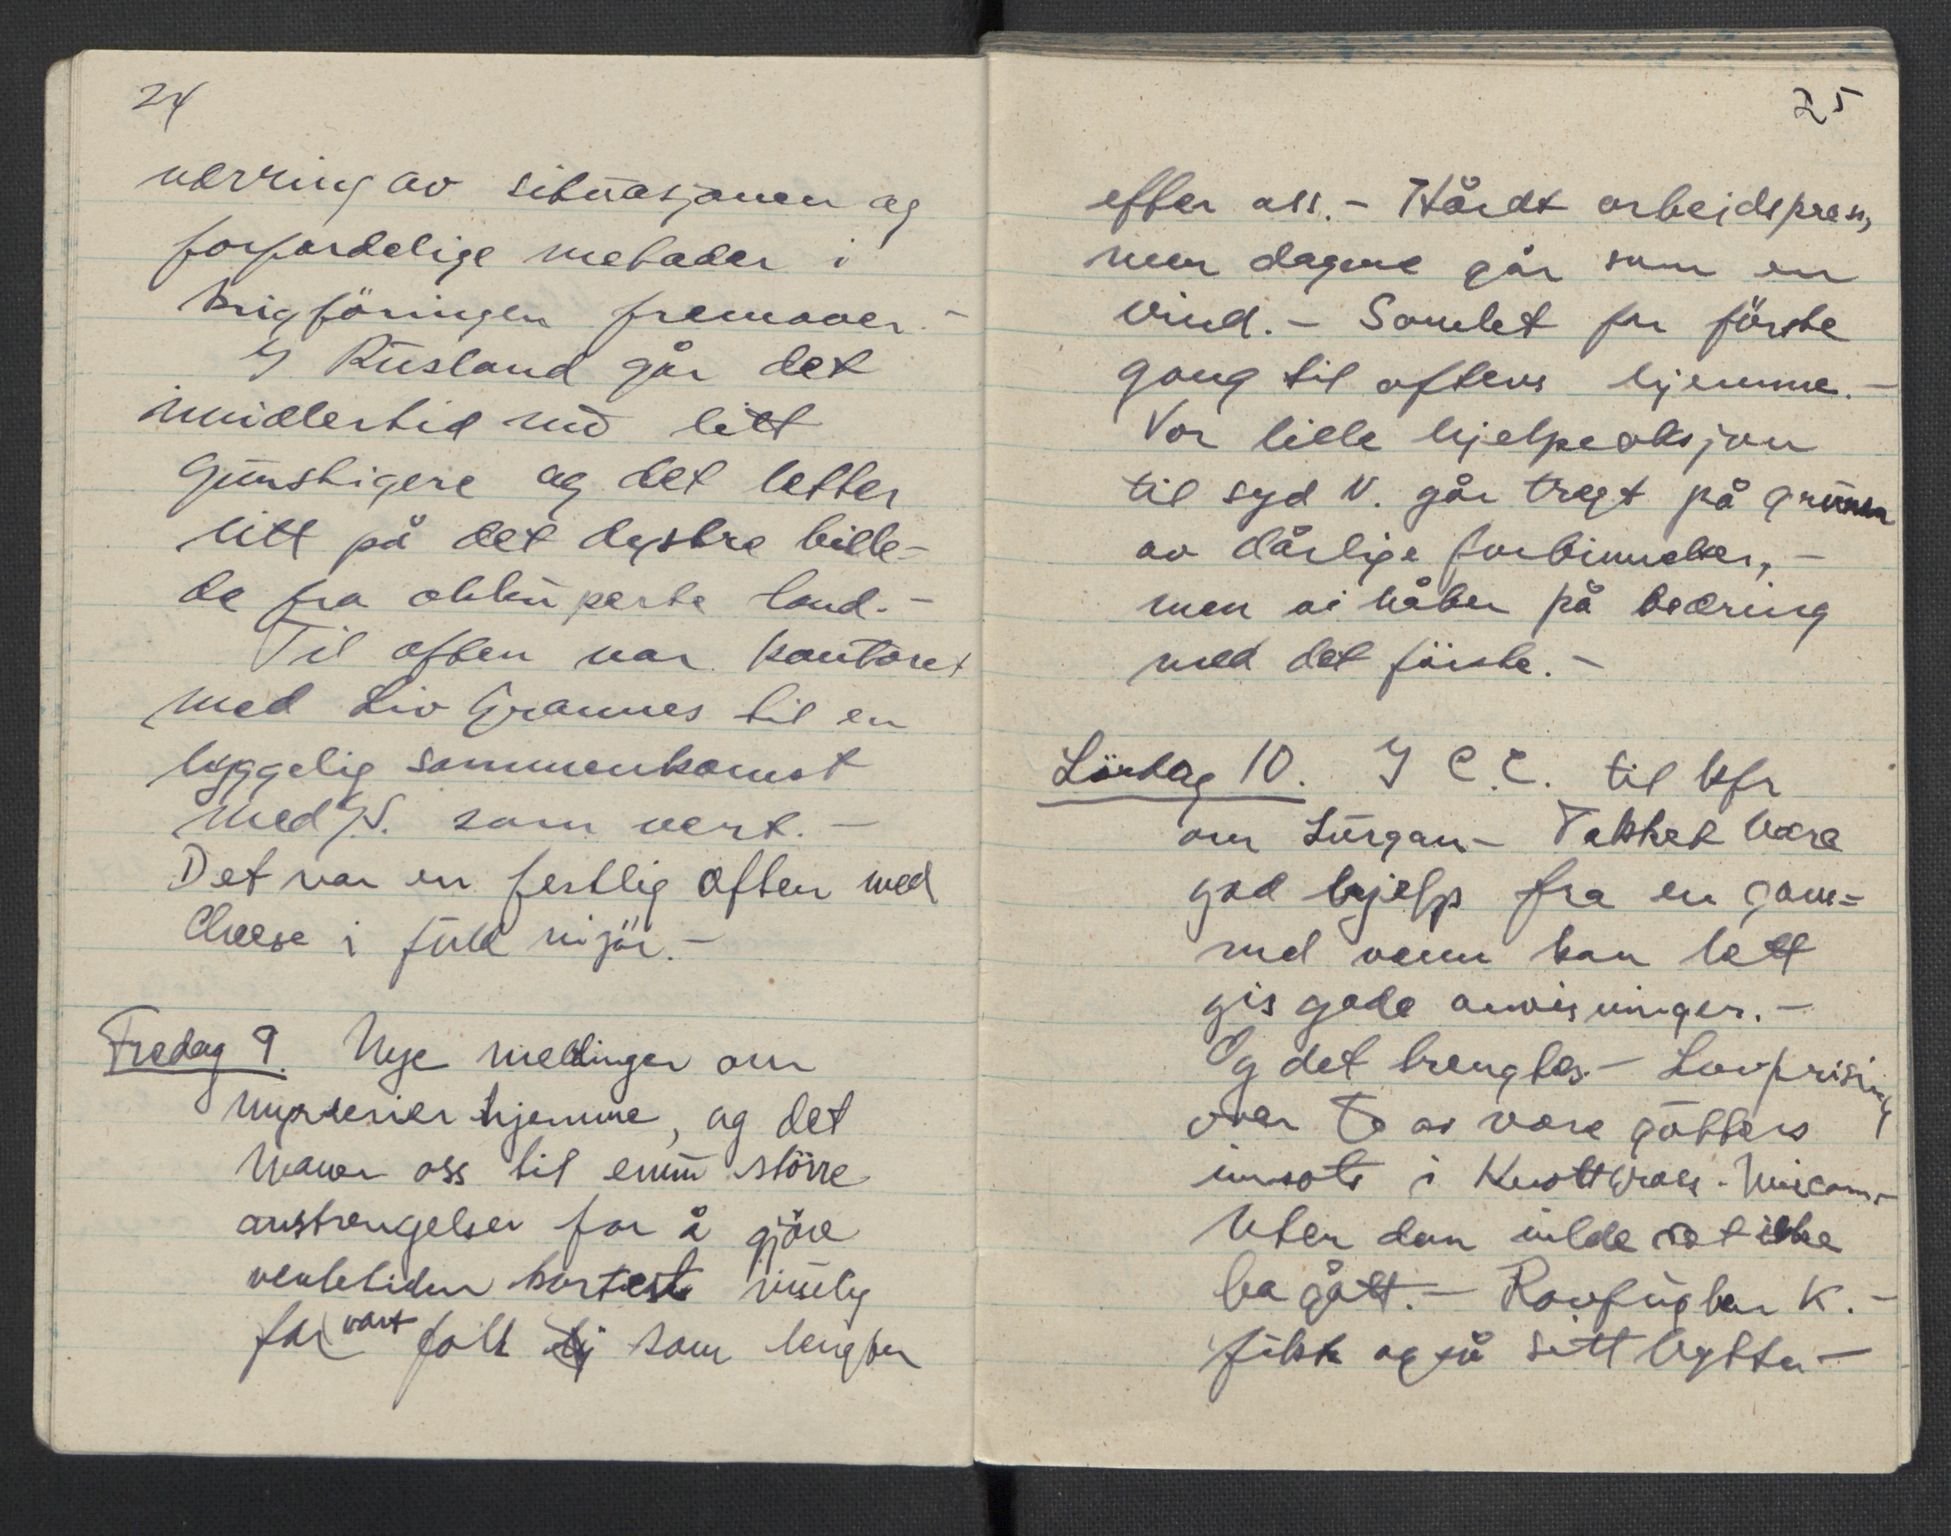 24
værring av situasjonen og
forferdelige metoder i
krigföringen fremover. -
I Rusland går det
imidlertid nu litt
gunstigere og det letter
litt på det dystre bille-
de fra okkuperte land. -
Til aften var kontoret
med Liv Grannes til en
hyggelig sammenkomst
med som vert. -
Det var en festlig aften med
Cheese i full vigör. -
Fredag 9. Nye meldinger om
myrderier hjemme, og det
maner oss til ennu större
anstrengelser for å gjöre
ventetiden kortest mulig
for vårt folk som lengter
25
efter oss. - Hårdt arbeidspress,
men dagene går som en
vind. - Samlet for förste
gang til aftens hjemme. -
Vor lille hjelpeaksjon
til syd N. går tregt på grunn
av dårlige forbinnelser, -
men vi håber på bedring
med det förste. -
Lördag 10. I C.C. til kfr
om Lurgan - Takket være
god hjelp fra en gam=
mel venn kan lett
gis gode anvisninger. -
Og det trengtes - Lovprising
over to av våre gutters
innsats i
Uten dem vilde det ikke
ha gått. - Rovfuglen K. -
fikk også sitt lytte -